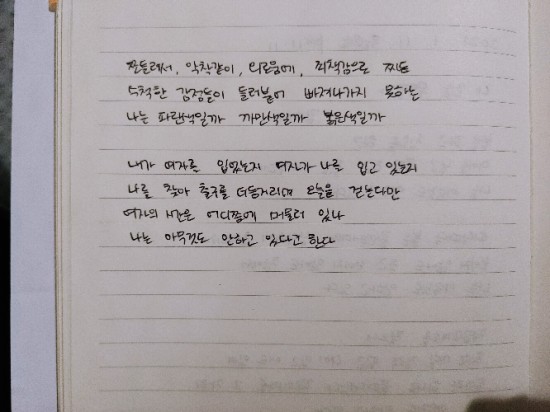 찐득해서, 악착같이, 외로움에, 죄책감으로 찌든
수척한 감정들이 들러붙어 빠져나가지 못하는
나는 파란색일까 까만색일까 붉은색일까
내가 여자를 입었는지 여자가 나를 입고 있는지
나를 찾아 출구를 더듬거리며 오늘을 걷는다만
여자의 시간은 어디쯤에 머물러 있나
나는 아무것도 안하고 있다고 한다